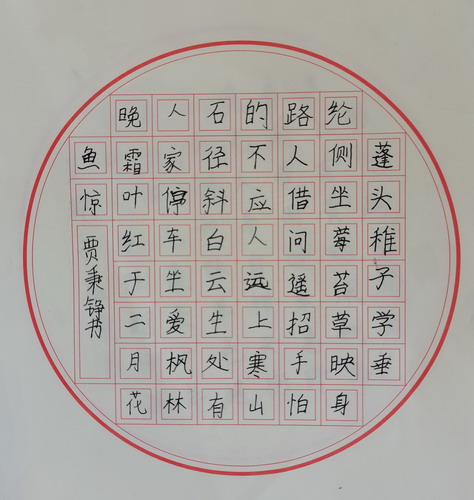 蓬头稚子学垂
纶侧坐莓苔草映身
路人借问遥招手怕
的不应人远上寒山
石径斜白云生处有
人家停车坐爱枫林
晚霜叶红于二月花
鱼惊
贾秉铮书